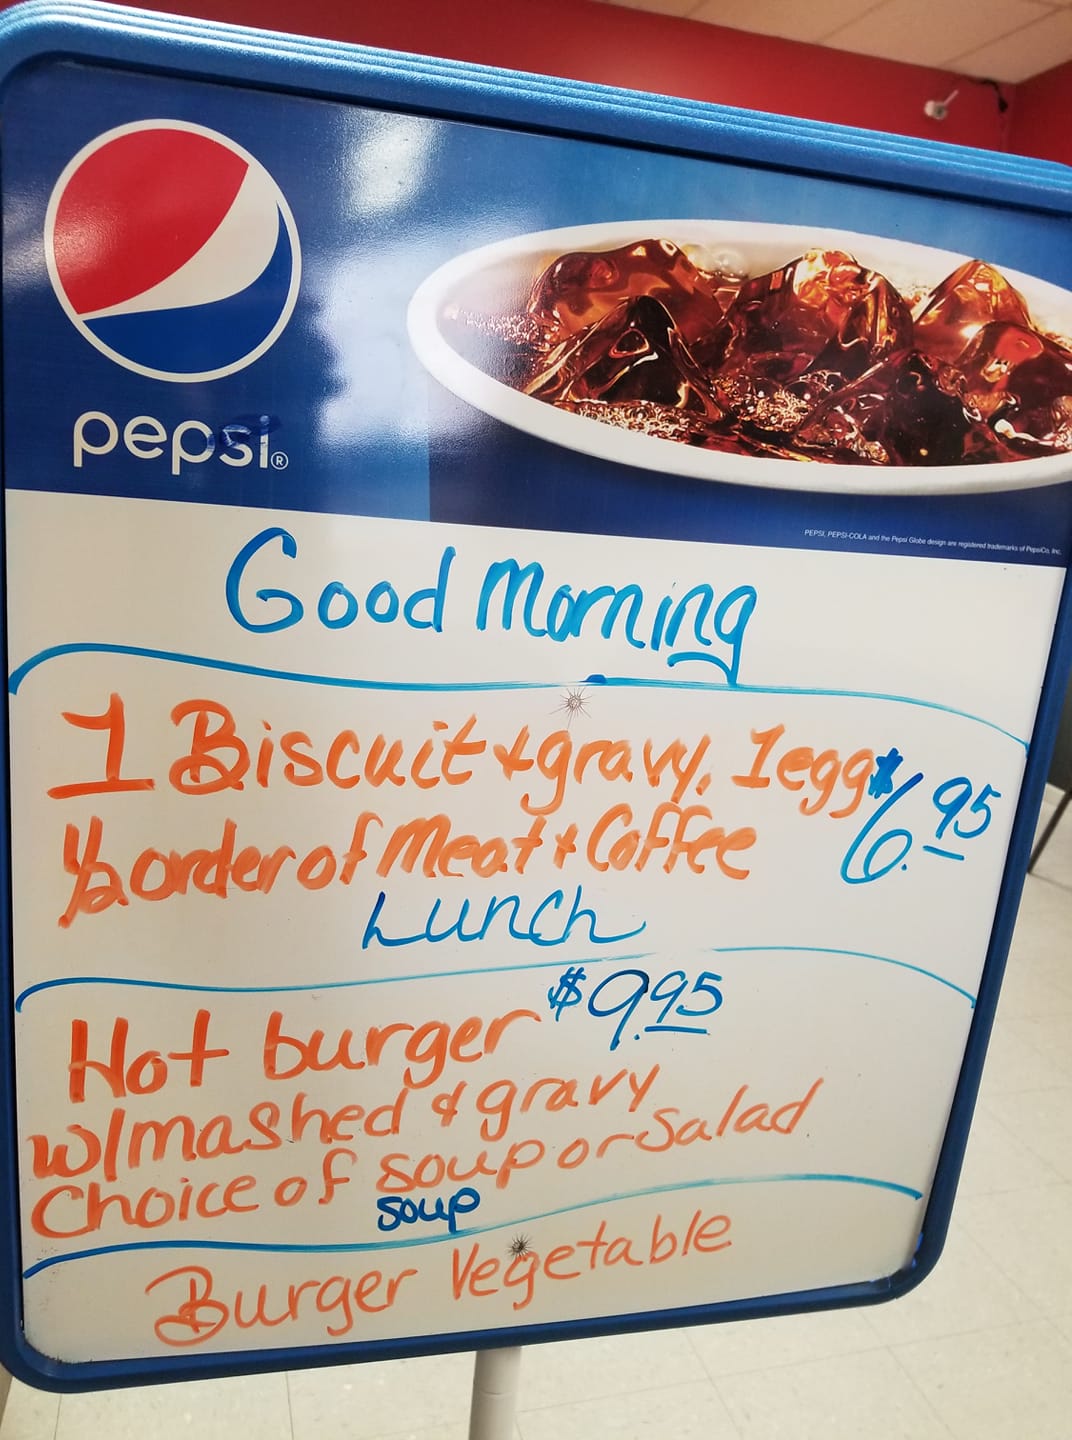 pepsi®
PEPSI, PEPSI-COLA and the Pepsi Globe design are registered trademarks of PepsiCo, Inc.
Good Morning
1 Biscuit + gravy, 1 egg $6.95
1/2 order of Meat + Coffee
Lunch
Hot burger $9.95
w/mashed & gravy
Choice of soup or salad
soup
Burger Vegetable